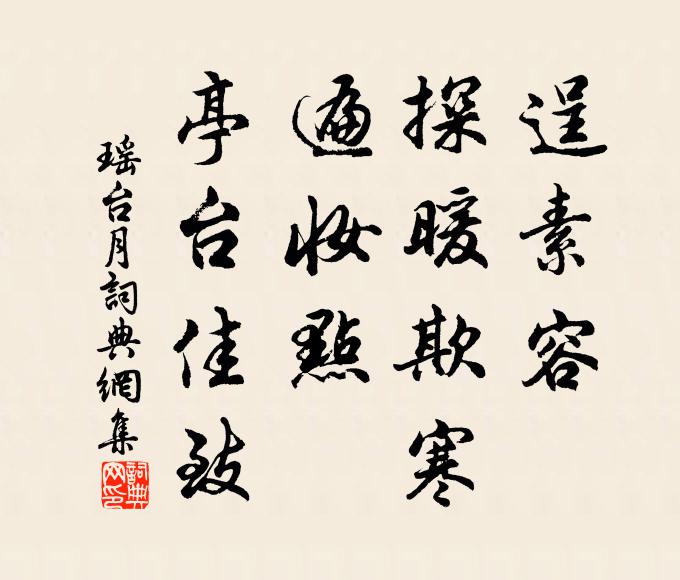 逞素容
探暖欺寒
遍妝點
亭台佳致
瑶台月詞典網集
詞典
网印